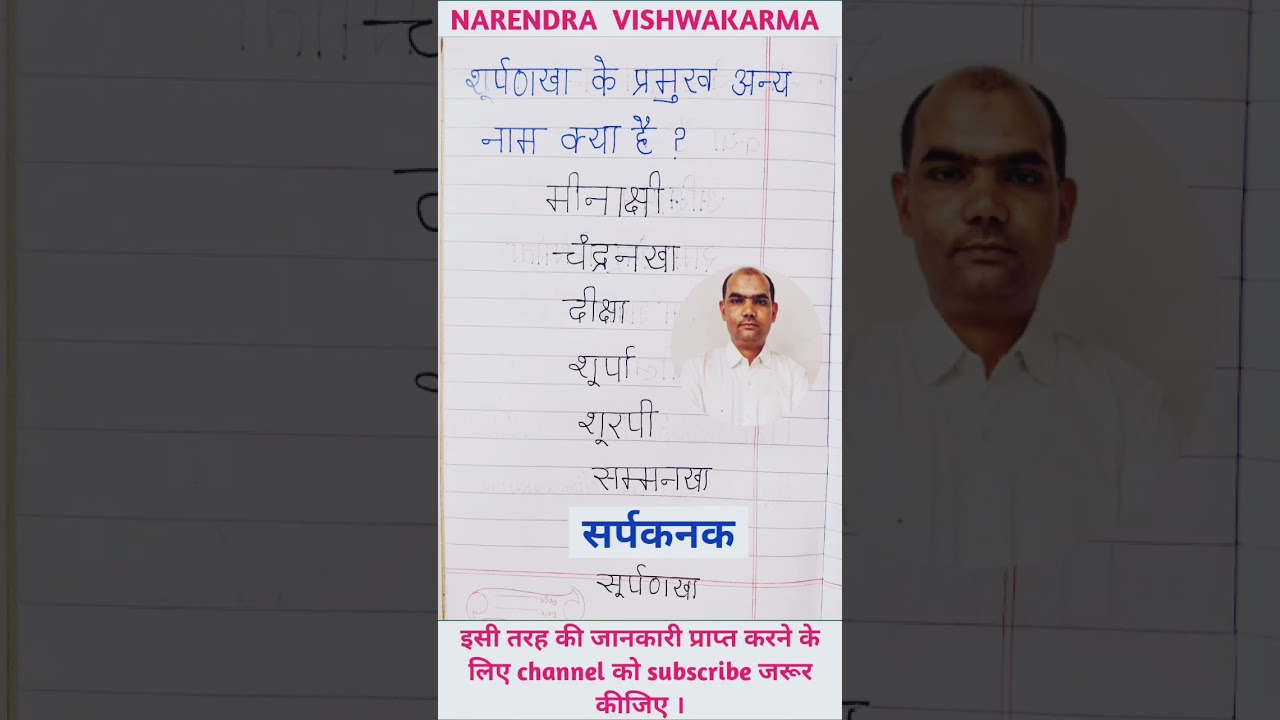 NARENDRA VISHWAKARMA
शूर्पणखा के प्रमुख अन्य
नाम क्या है ?
मीनाक्षी
चंद्रनखा
दीक्षा
शूर्पा
शूरपी
सम्मनखा
सर्पकनक
सूर्पणखा
इसी तरह की जानकारी प्राप्त करने के
लिए channel को subscribe जरूर
कीजिए ।